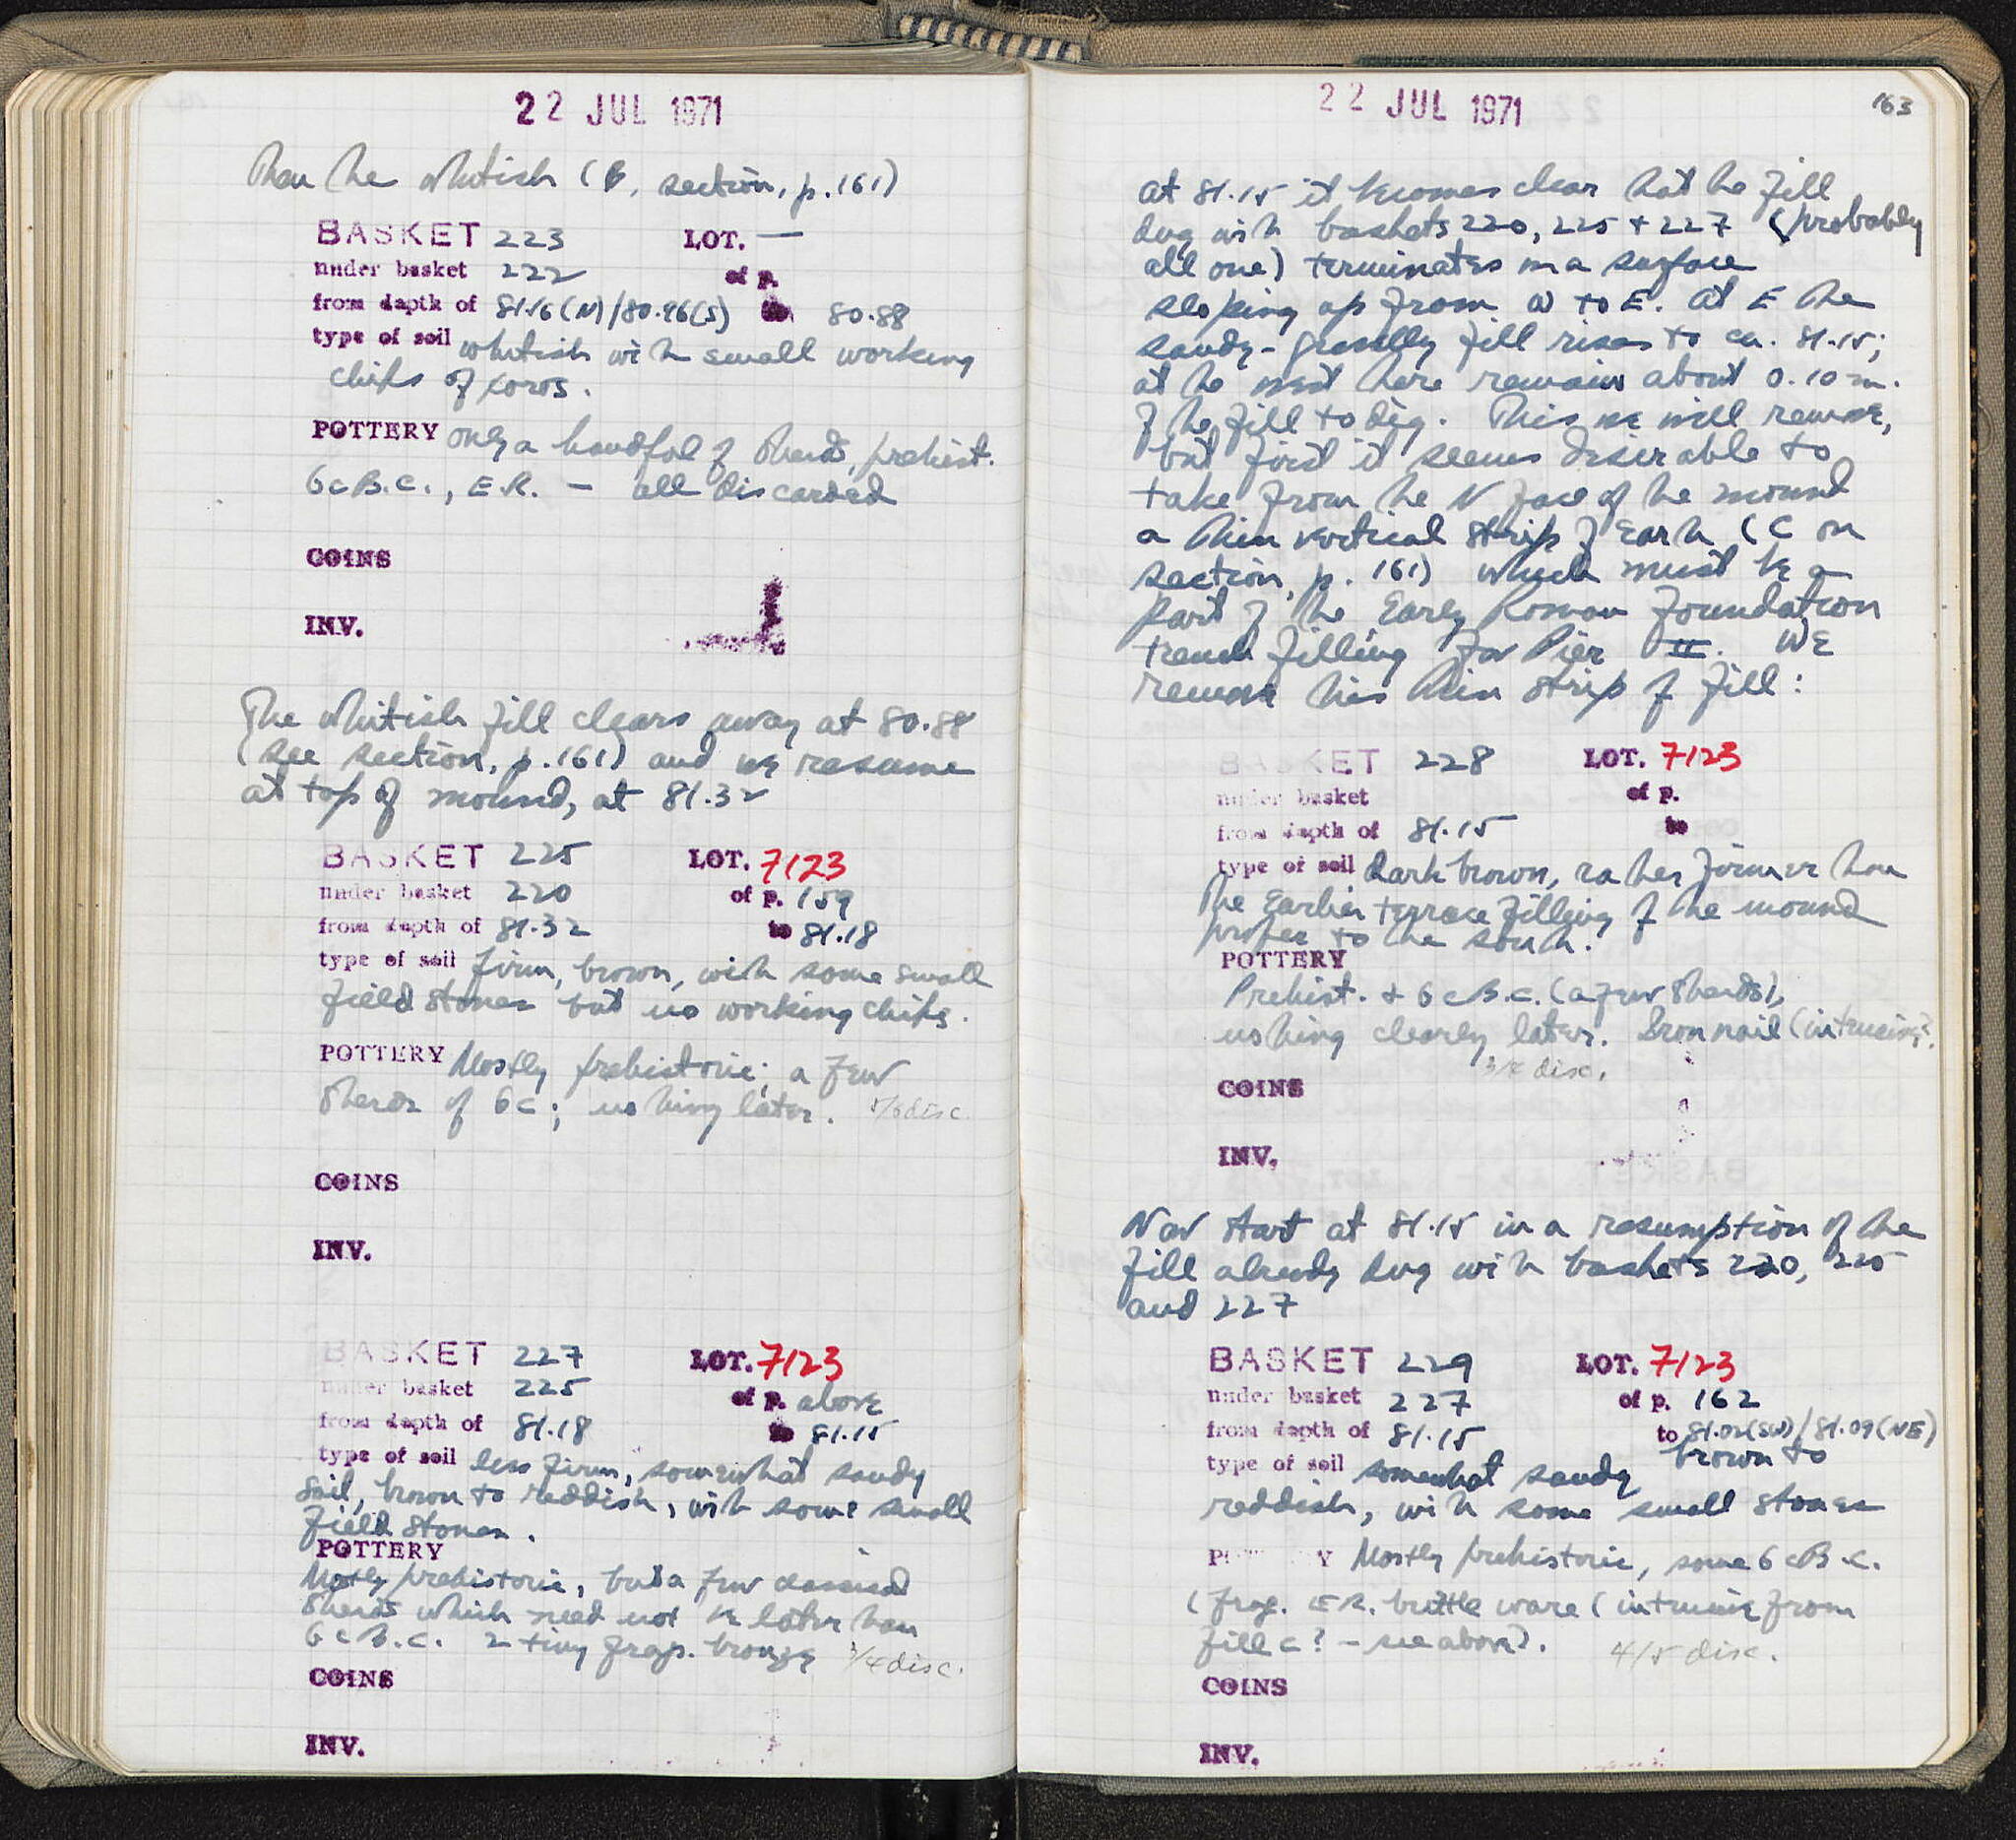 22 JUL 1971
Then the whitish (B, section, p. 161)
BASKET 223 LOT. —
under basket 222 of p.
from depth of 81.16(N)/80.96(S) to 80.88
type of soil whitish with small working
chips of poros.
POTTERY only a handful of sherds, prehist.
6cB.C., E.R. – all discarded
COINS
INV.
The whitish fill clears away at 80.88
(see section, p. 161) and we resume
at top of mound, at 81.32
BASKET 225 LOT. 7123
under basket 220 of p. 159
from depth of 81.32 to 81.18
type of soil firm, brown, with some small
field stones but no working chips.
POTTERY Mostly prehistoric; a few
sherds of 6c; nothing later. 5/6 disc.
COINS
INV.
BASKET 227 LOT. 7123
under basket 225 of p. above
from depth of 81.18 to 81.15
type of soil less firm, somewhat sandy
soil, brown to reddish, with some small
field stones.
POTTERY
Mostly prehistoric, but a few classical
sherds which need not be later than
6cB.C. 2 tiny frags. bronze 3/4 disc.
COINS
INV.
22 JUL 1971
163
at 81.15 it becomes clear that the fill
dug with baskets 220, 225 + 227 (probably
all one) terminates in a surface
sloping up from W to E. At E the
sandy-gravelly fill rises to ca. 81.15;
at the west there remains about 0.10 m.
of the fill to dig. This we will remove,
but first it seems desirable to
take from the N face of the mound
a thin vertical strip of earth (C on
section, p. 161) which must be a
part of the Early Roman foundation
trench filling for Pier II. We
remove this thin strip of fill:
BASKET 228 LOT. 7123
under basket of p.
from depth of 81.15 to
type of soil Dark brown, rather firmer than
the earlier terrace filling of the mound
proper to the south.
POTTERY
Prehist. + 6cB.C. (a few sherds),
nothing clearly later. Iron nail (intrusive?
3/4 disc.
COINS
INV.
Now start at 81.15 in a resumption of the
fill already dug with baskets 220, 225
and 227
BASKET 229 LOT. 7123
under basket 227 of p. 162
from depth of 81.15 to 81.02(SW)/81.09(NE)
type of soil somewhat sandy brown to
reddish, with some small stones
POTTERY Mostly prehistoric, some 6cB.C.
(frag. E.R. brittle ware (intrusive from
fill C? – see above). 4/5 disc.
COINS
INV.